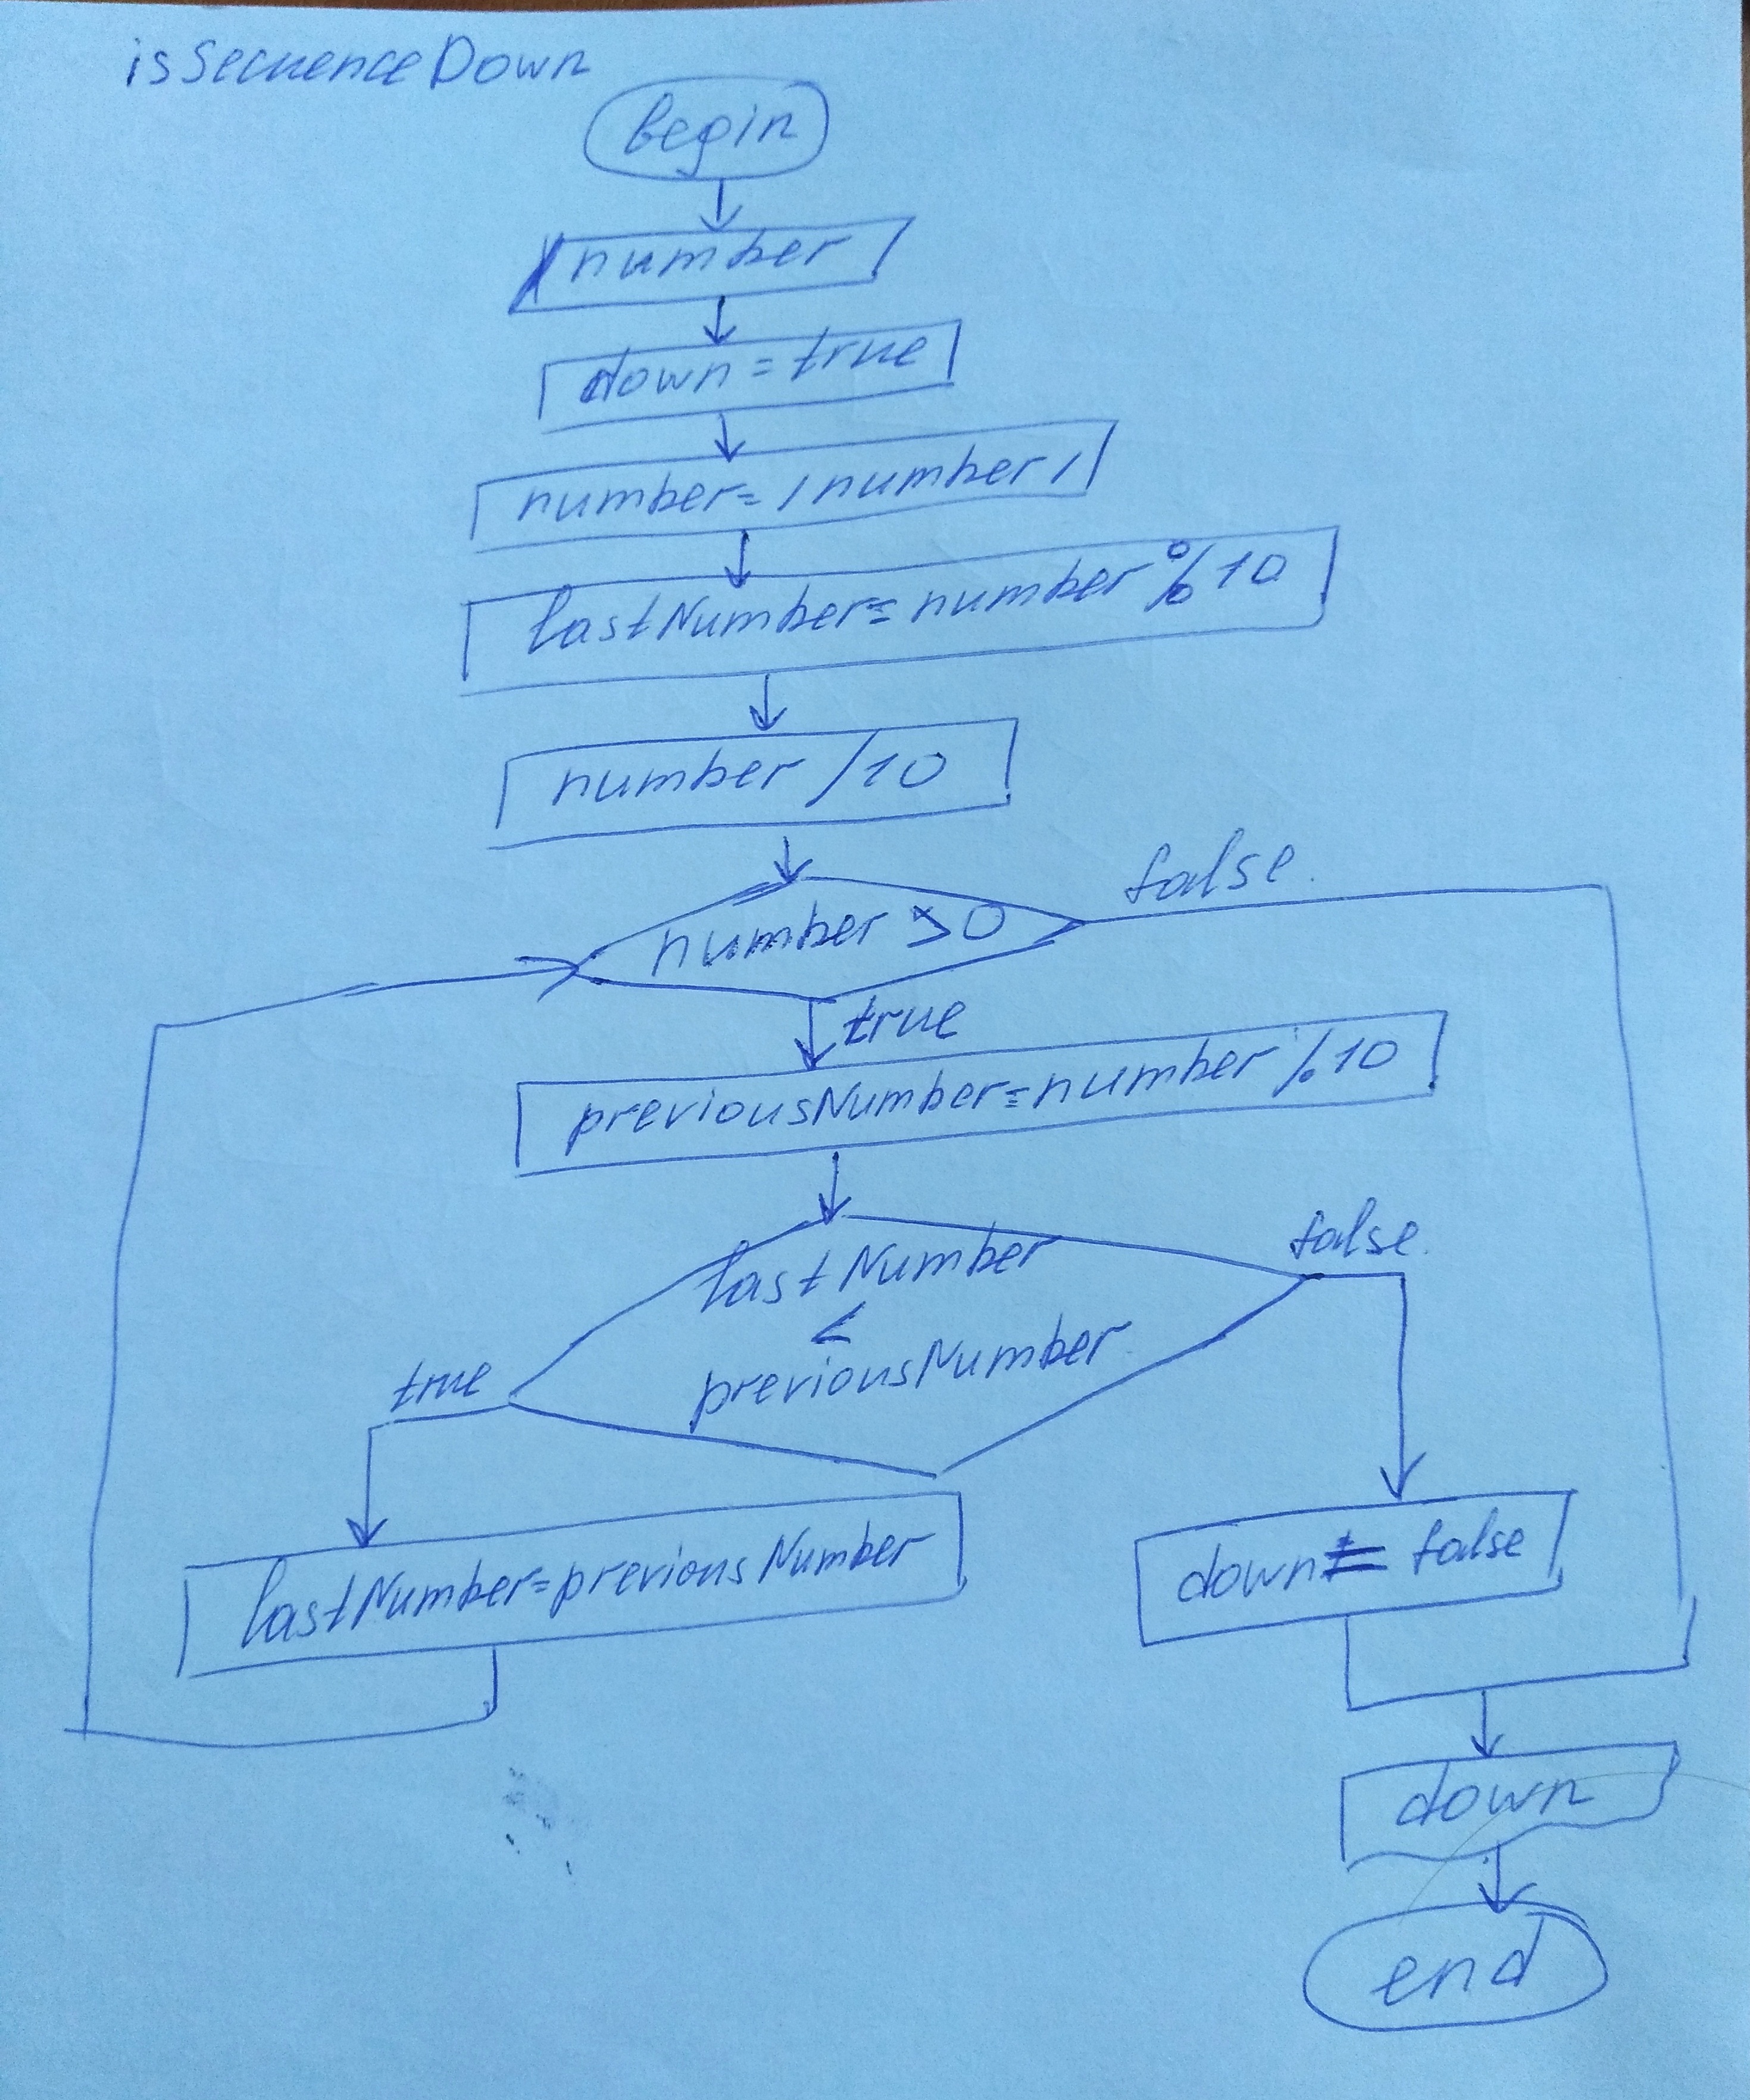 isSecuenceDown
begin
number
down = true
number = |number|
lastNumber = number % 10
number / 10
false.
number > 0
true
previousNumber = number % 10
false.
lastNumber
<
previousNumber
true
lastNumber = previousNumber
down = false
down
end